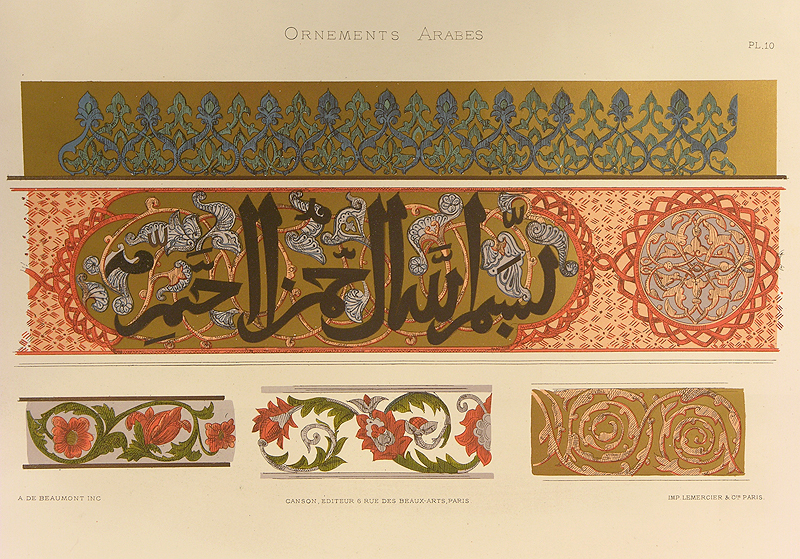 ORNEMENTS ARABES
PL.10
بسم الله الرحمن الرحيم
A. DE BEAUMONT INC
CANSON, EDITEUR 6 RUE DES BEAUX-ARTS, PARIS.
IMP. LEMERCIER & Cie PARIS.